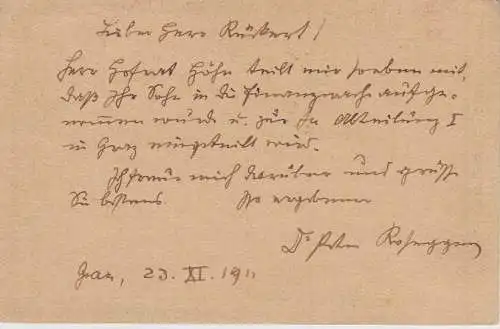 Lieber Herr Rückert!
Herr Hofrat Höhn teilt mir soeben mit,
daß Ihr Sohn in die Finanzwache aufge-
nommen wurde u. zur Abteilung I
in Graz eingeteilt wird.
Ich freue mich darüber und grüße
Sie bestens
Ihr ergebener
Dr Peter Rosegger
Graz, 23. XI. 1911